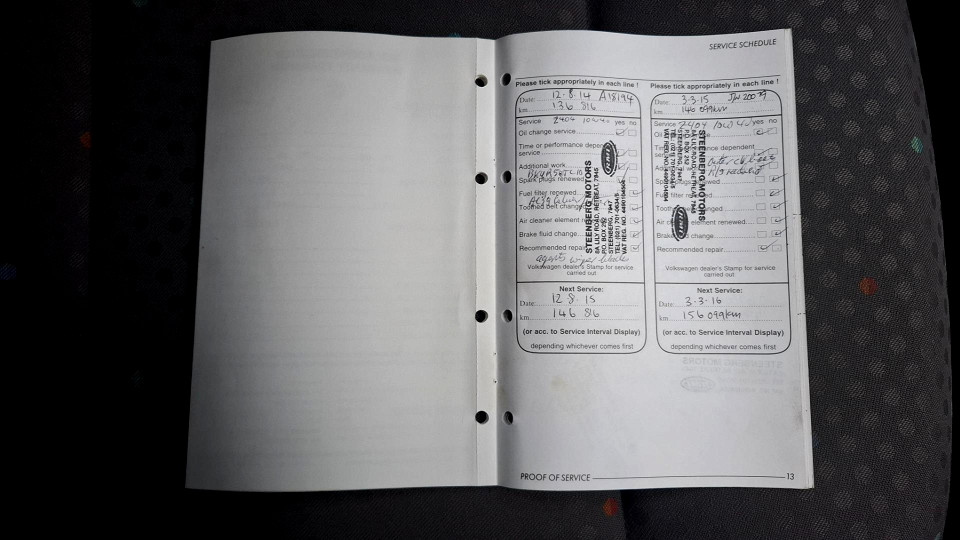 SERVICE SCHEDULE
Please tick appropriately in each line !
Date: 12-8-14 A18194
km 136 816
Service 2404 10w40 yes no
Oil change service
Time or performance depen
service
Additional work
Spark plugs renewed
Fuel filter renewed
Toothed belt change
Air cleaner element r
Brake fluid change
Recommended repai
agents wiper blade
Volkswagen dealer's Stamp for service
carried out
STEENBERG MOTORS
8A LILY ROAD, RETREAT, 7945
P.O. BOX 292
STEENBERG, 7947
TEL: (021) 701-0034/5
VAT REG. NO. 4490104504
RMI
Next Service:
Date: 12 8 15
km 146 816
(or acc. to Service Interval Display)
depending whichever comes first
Please tick appropriately in each line !
Date: 3-3-15
km 146 099km
Service 2404 10w40 yes no
Oil
ce
Tim
dependent
Sp
ewed
Fuel filter re
Tooth
anged
Air c
element renewed
Brake
change
Recommended repair
Volkswagen dealer's Stamp for service
carried out
STEENBERG MOTORS
8A LILY ROAD, RETREAT, 7945
P.O. BOX 292
STEENBERG, 7947
TEL: (021) 701-0034/5
VAT REG. NO. 4490104504
RMI
Next Service:
Date: 3-3-16
km 156 099km
(or acc. to Service Interval Display)
depending whichever comes first
PROOF OF SERVICE 13